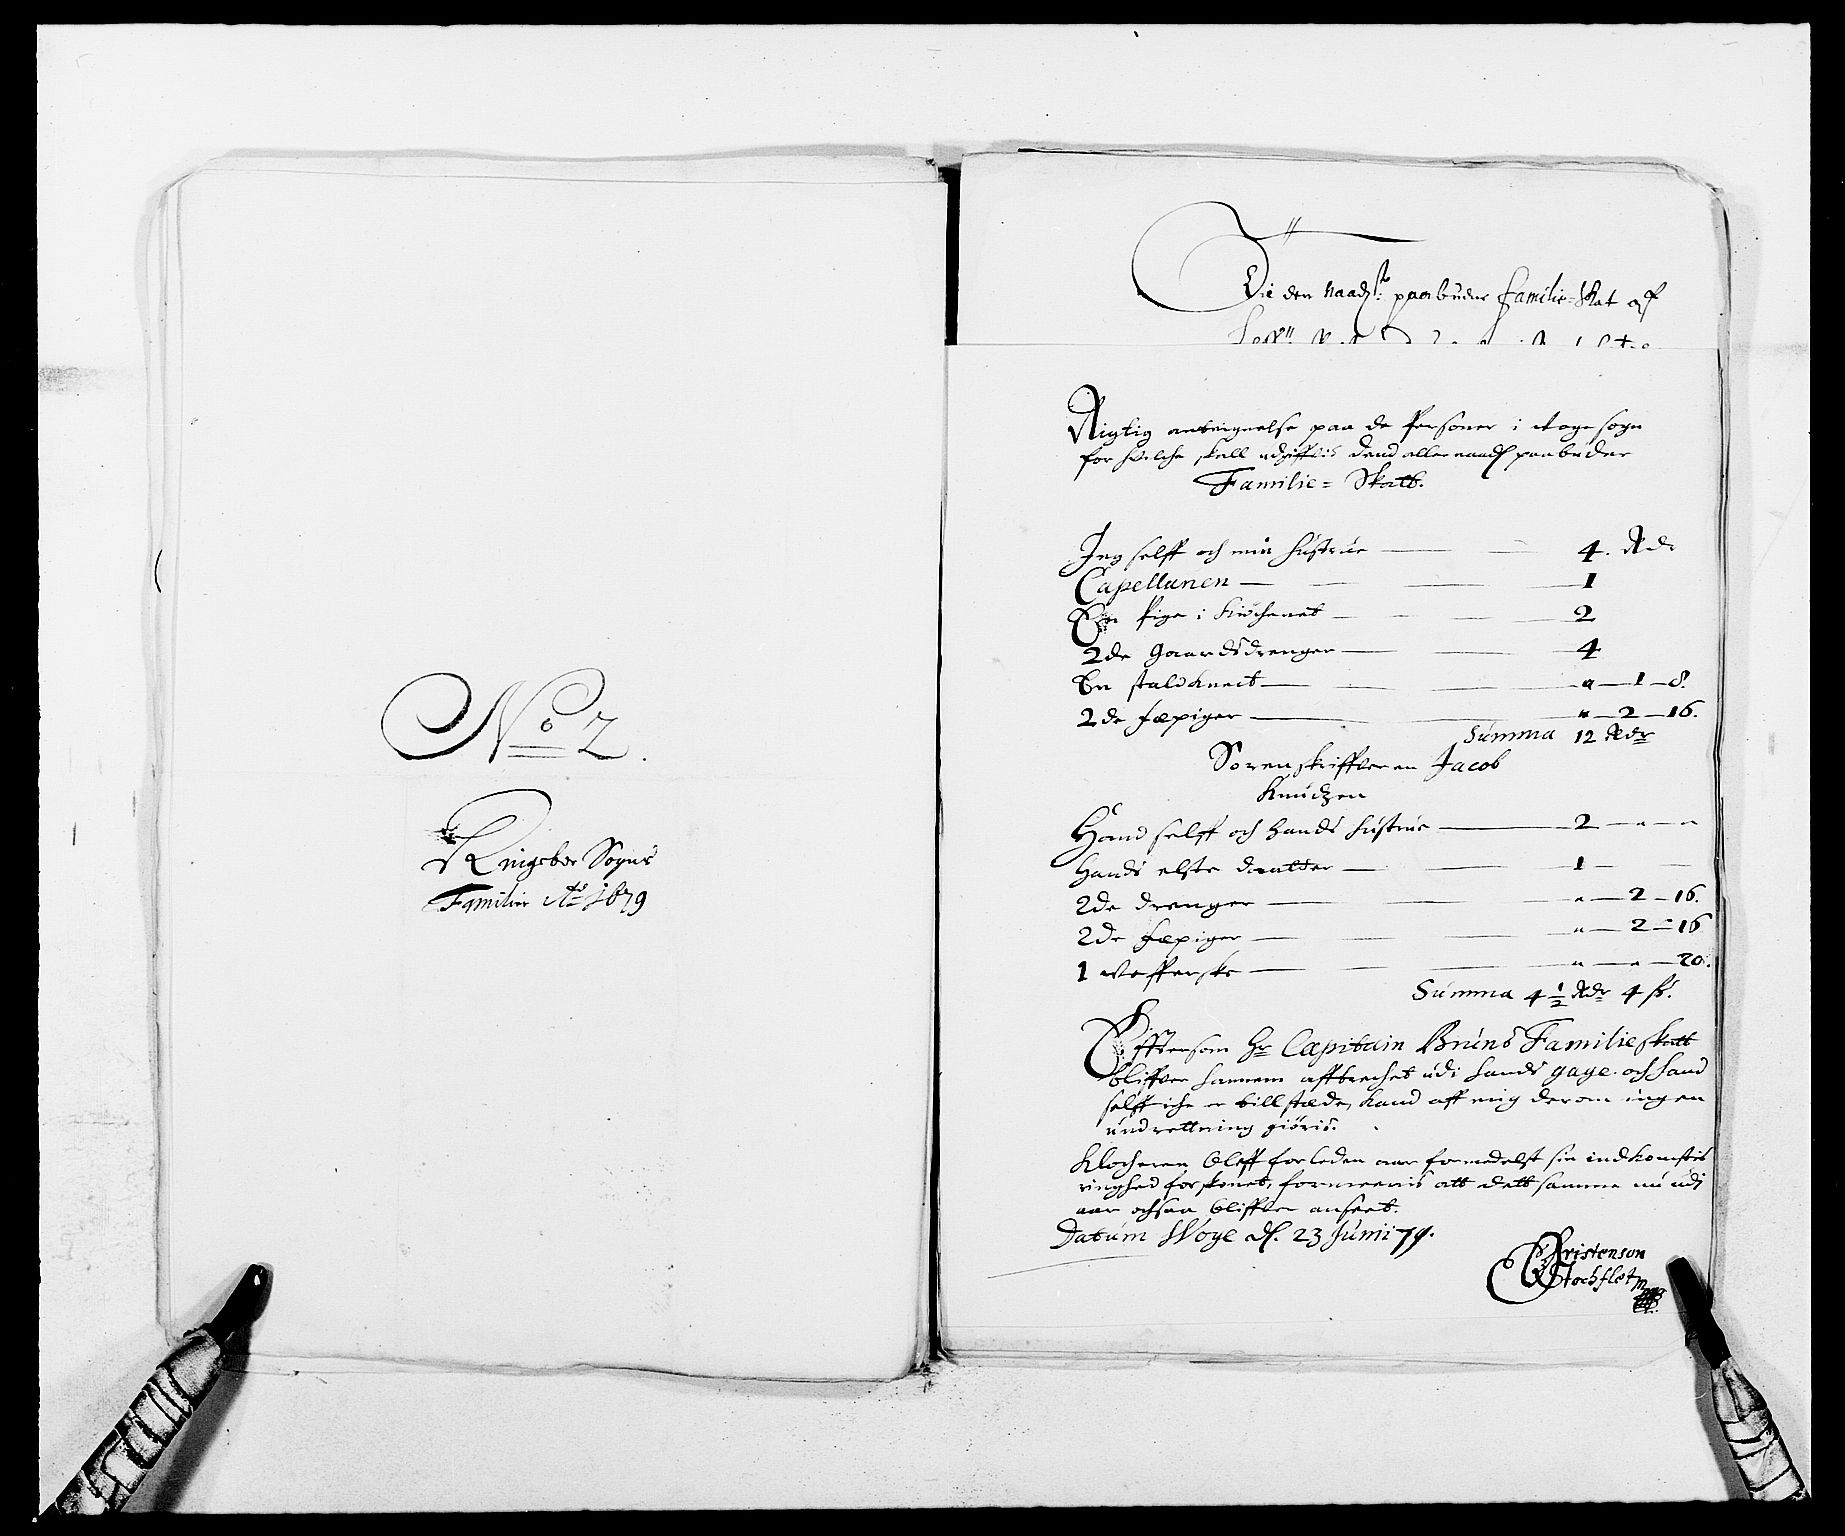 No 2.
Ringeboe Sogns
Familie Ao 1679
Die den naadst: paabudne familie-Skat aff
Rigtig anteignelse paa de Personer i Woge sogn
for hvilche skall udgiffvis dend aller naadst paabudne
Familie= Skatt.
Jeg selff och min hustrue 4. Rdr
Capellanen 1
En Pige i Kiøchenet 2
2de Gaardsdrenger 4
En staldknect " 1 8.
2de fæpiger " 2 16.
Summa 12 Rdr
Sorenskriffveren Jacob
Knudzen
Hand selff och hands hustrue 2 " "
hands elste daatter 1
2de drenger " 2 16.
2de fæpiger " 2 16
1 " " 20.
Summa 4 1/2 Rdr 4 ß.
Effttersom Hr Capitain Bruns Familieskatt
bliffver hannem affkrechet udi hands gage och hand
selff iche er till stæde, kand aff mig derom ingen
undrettning giøris.
Klocheren bleff forleden aar formedelst sin indkomstis
ringhed forskonet, formeenis att dett samme nu udj
aar ochsaa bliffver anseet.
Datum Woge d. 23 Junii 79.
Christenson
Stochflet